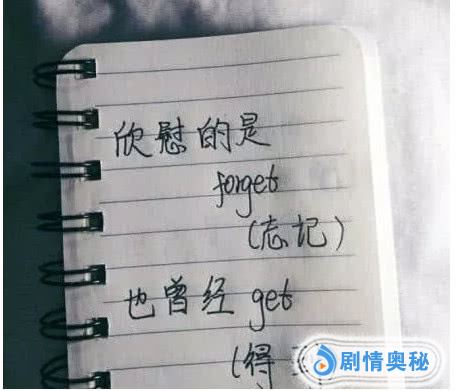 欣慰的是
forget
(忘记)
也曾经 get
(得
剧情奥秘